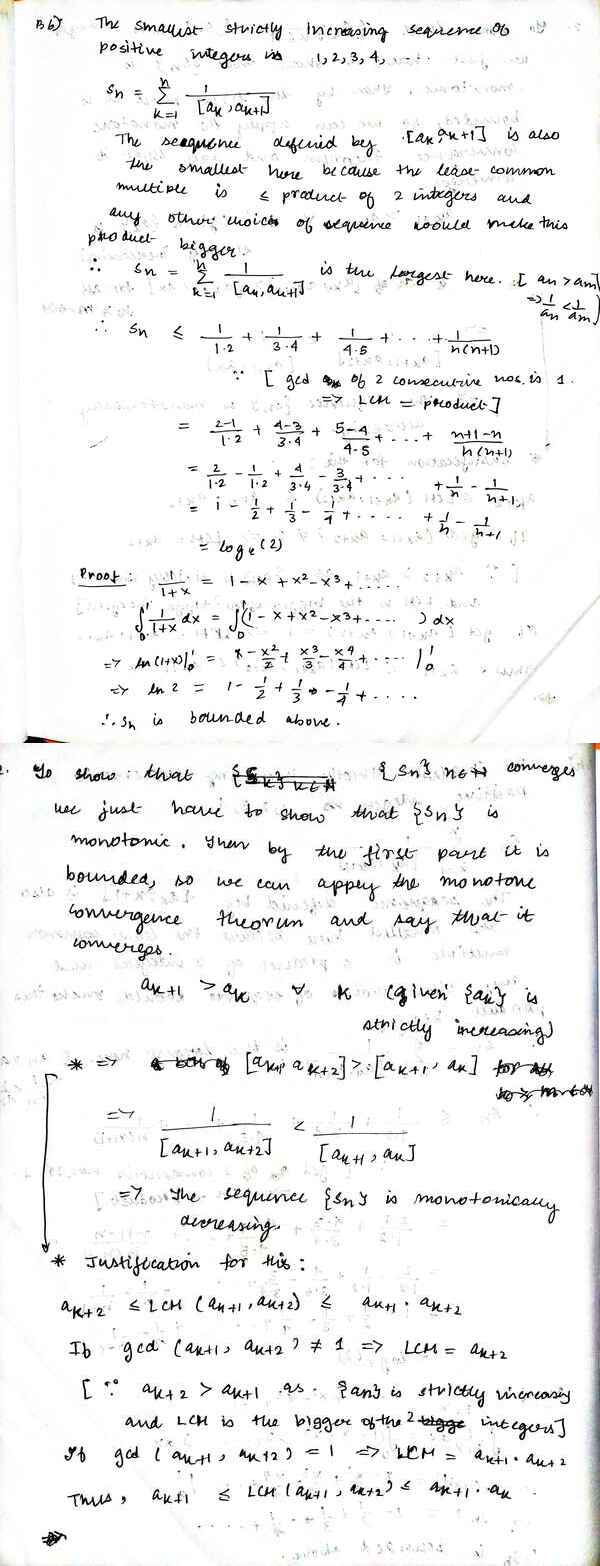 B6) The smallest strictly increasing sequence of
positive integers is 1, 2, 3, 4, ...
Sn = n Σ k=1 1/[ak, ak+1]
The seaquence defined by [ak, ak+1] is also
the smallest here because the least common
multiple is ≤ product of 2 integers and
any other choice of sequence would make this
product bigger.
∴ Sn = n Σ k=1 1/[an, an+1] is the largest here. [an > am
=> 1/an < 1/am]
∴ Sn ≤ 1/1.2 + 1/3.4 + 1/4.5 + ... + 1/n(n+1)
∵ [gcd of 2 consecutive nos. is 1.
=> LCM = product]
= 2-1/1.2 + 4-3/3.4 + 5-4/4.5 + ... + n+1-n/n(n+1)
= 2/1.2 - 1/1.2 + 4/3.4 - 3/3.4 + ... + 1/n - 1/n+1
= 1 - 1/2 + 1/3 - 1/4 + .... + 1/n - 1/n+1
= loge(2)
Proof: 1/1+x = 1 - x + x² - x³ + .....
∫₀¹ 1/1+x dx = ∫₀¹ (1 - x + x² - x³ + .... ) dx
=> ln(1+x)|₀¹ = x - x²/2 + x³/3 - x⁴/4 + .... |₀¹
=> ln 2 = 1 - 1/2 + 1/3 - 1/4 + ....
∴ Sn is bounded above.
2. To show that {Sn} n∈N converges
we just have to show that {Sn} is
monotonic. Then by the first part it is
bounded, so we can apply the monotone
convergence theorem and say that it
converges.
ak+1 > ak ∀ k (given {ak} is
strictly increasing)
* => [ak+1, ak+2] > [ak+1, ak]
=> 1/[ak+1, ak+2] < 1/[ak+1, ak]
=> The sequence {Sn} is monotonically
decreasing.
* Justification for this:
ak+2 ≤ LCM (ak+1, ak+2) ≤ ak+1 . ak+2
If gcd (ak+1, ak+2) ≠ 1 => LCM = ak+2
[∵ ak+2 > ak+1 as {an} is strictly increasing
and LCM is the bigger of the 2 integers]
If gcd (ak+1, ak+2) = 1 => LCM = ak+1 . ak+2
Thus, ak+1 ≤ LCM (ak+1, ak+2) ≤ ak+1 . ak